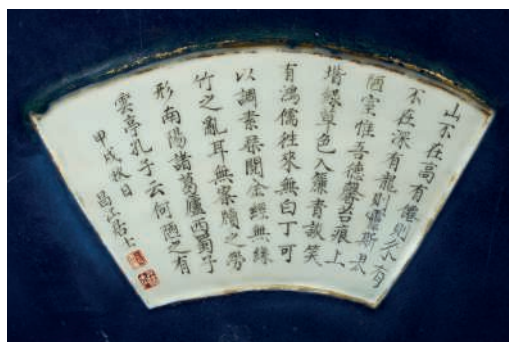 山不在高有僊則名水
不在深有龍則靈斯是
陋室惟吾德馨苔痕上
堦綠草色入簾青談笑
有鴻儒往來無白丁可
以調素琴閱金經無絲
竹之亂耳無案牘之勞
形南陽諸葛廬西蜀子
雲亭孔子云何陋之有
甲戌秋日 昌江居士